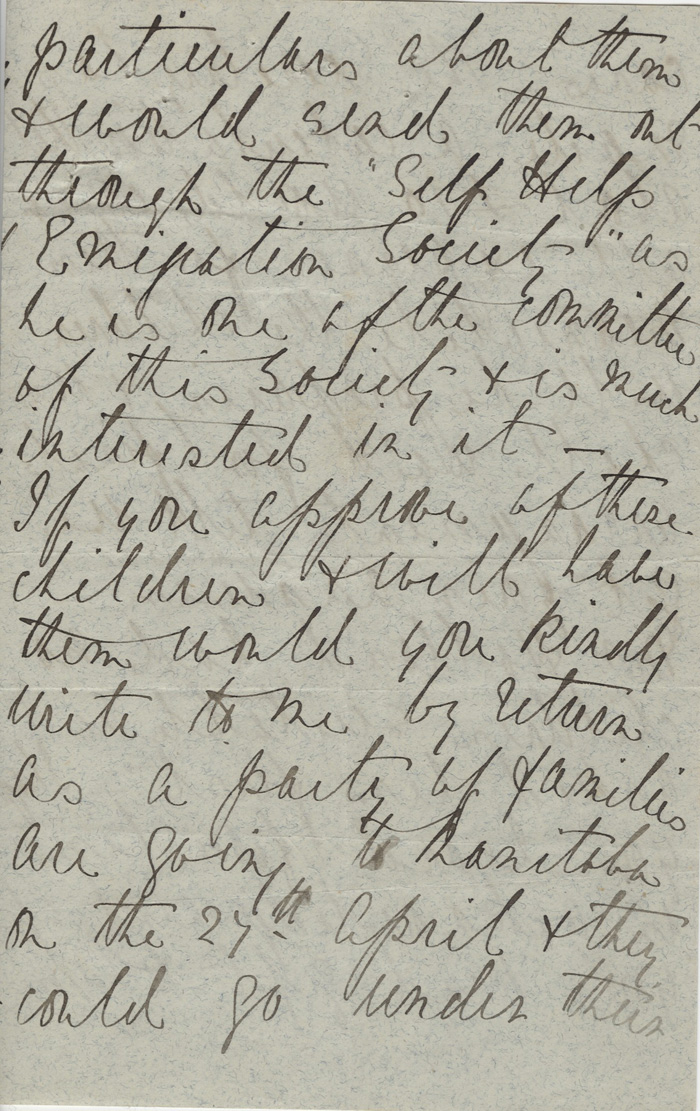 particulars about them
& would send them out
through the "Self Help
Emigration Society" as
he is one of the committee
of this Society & is much
interested in it -
If you approve of these
children & will have
them would you kindly
write to me by return
as a party of families
are going to Manitoba
on the 27th April & they
could go under their